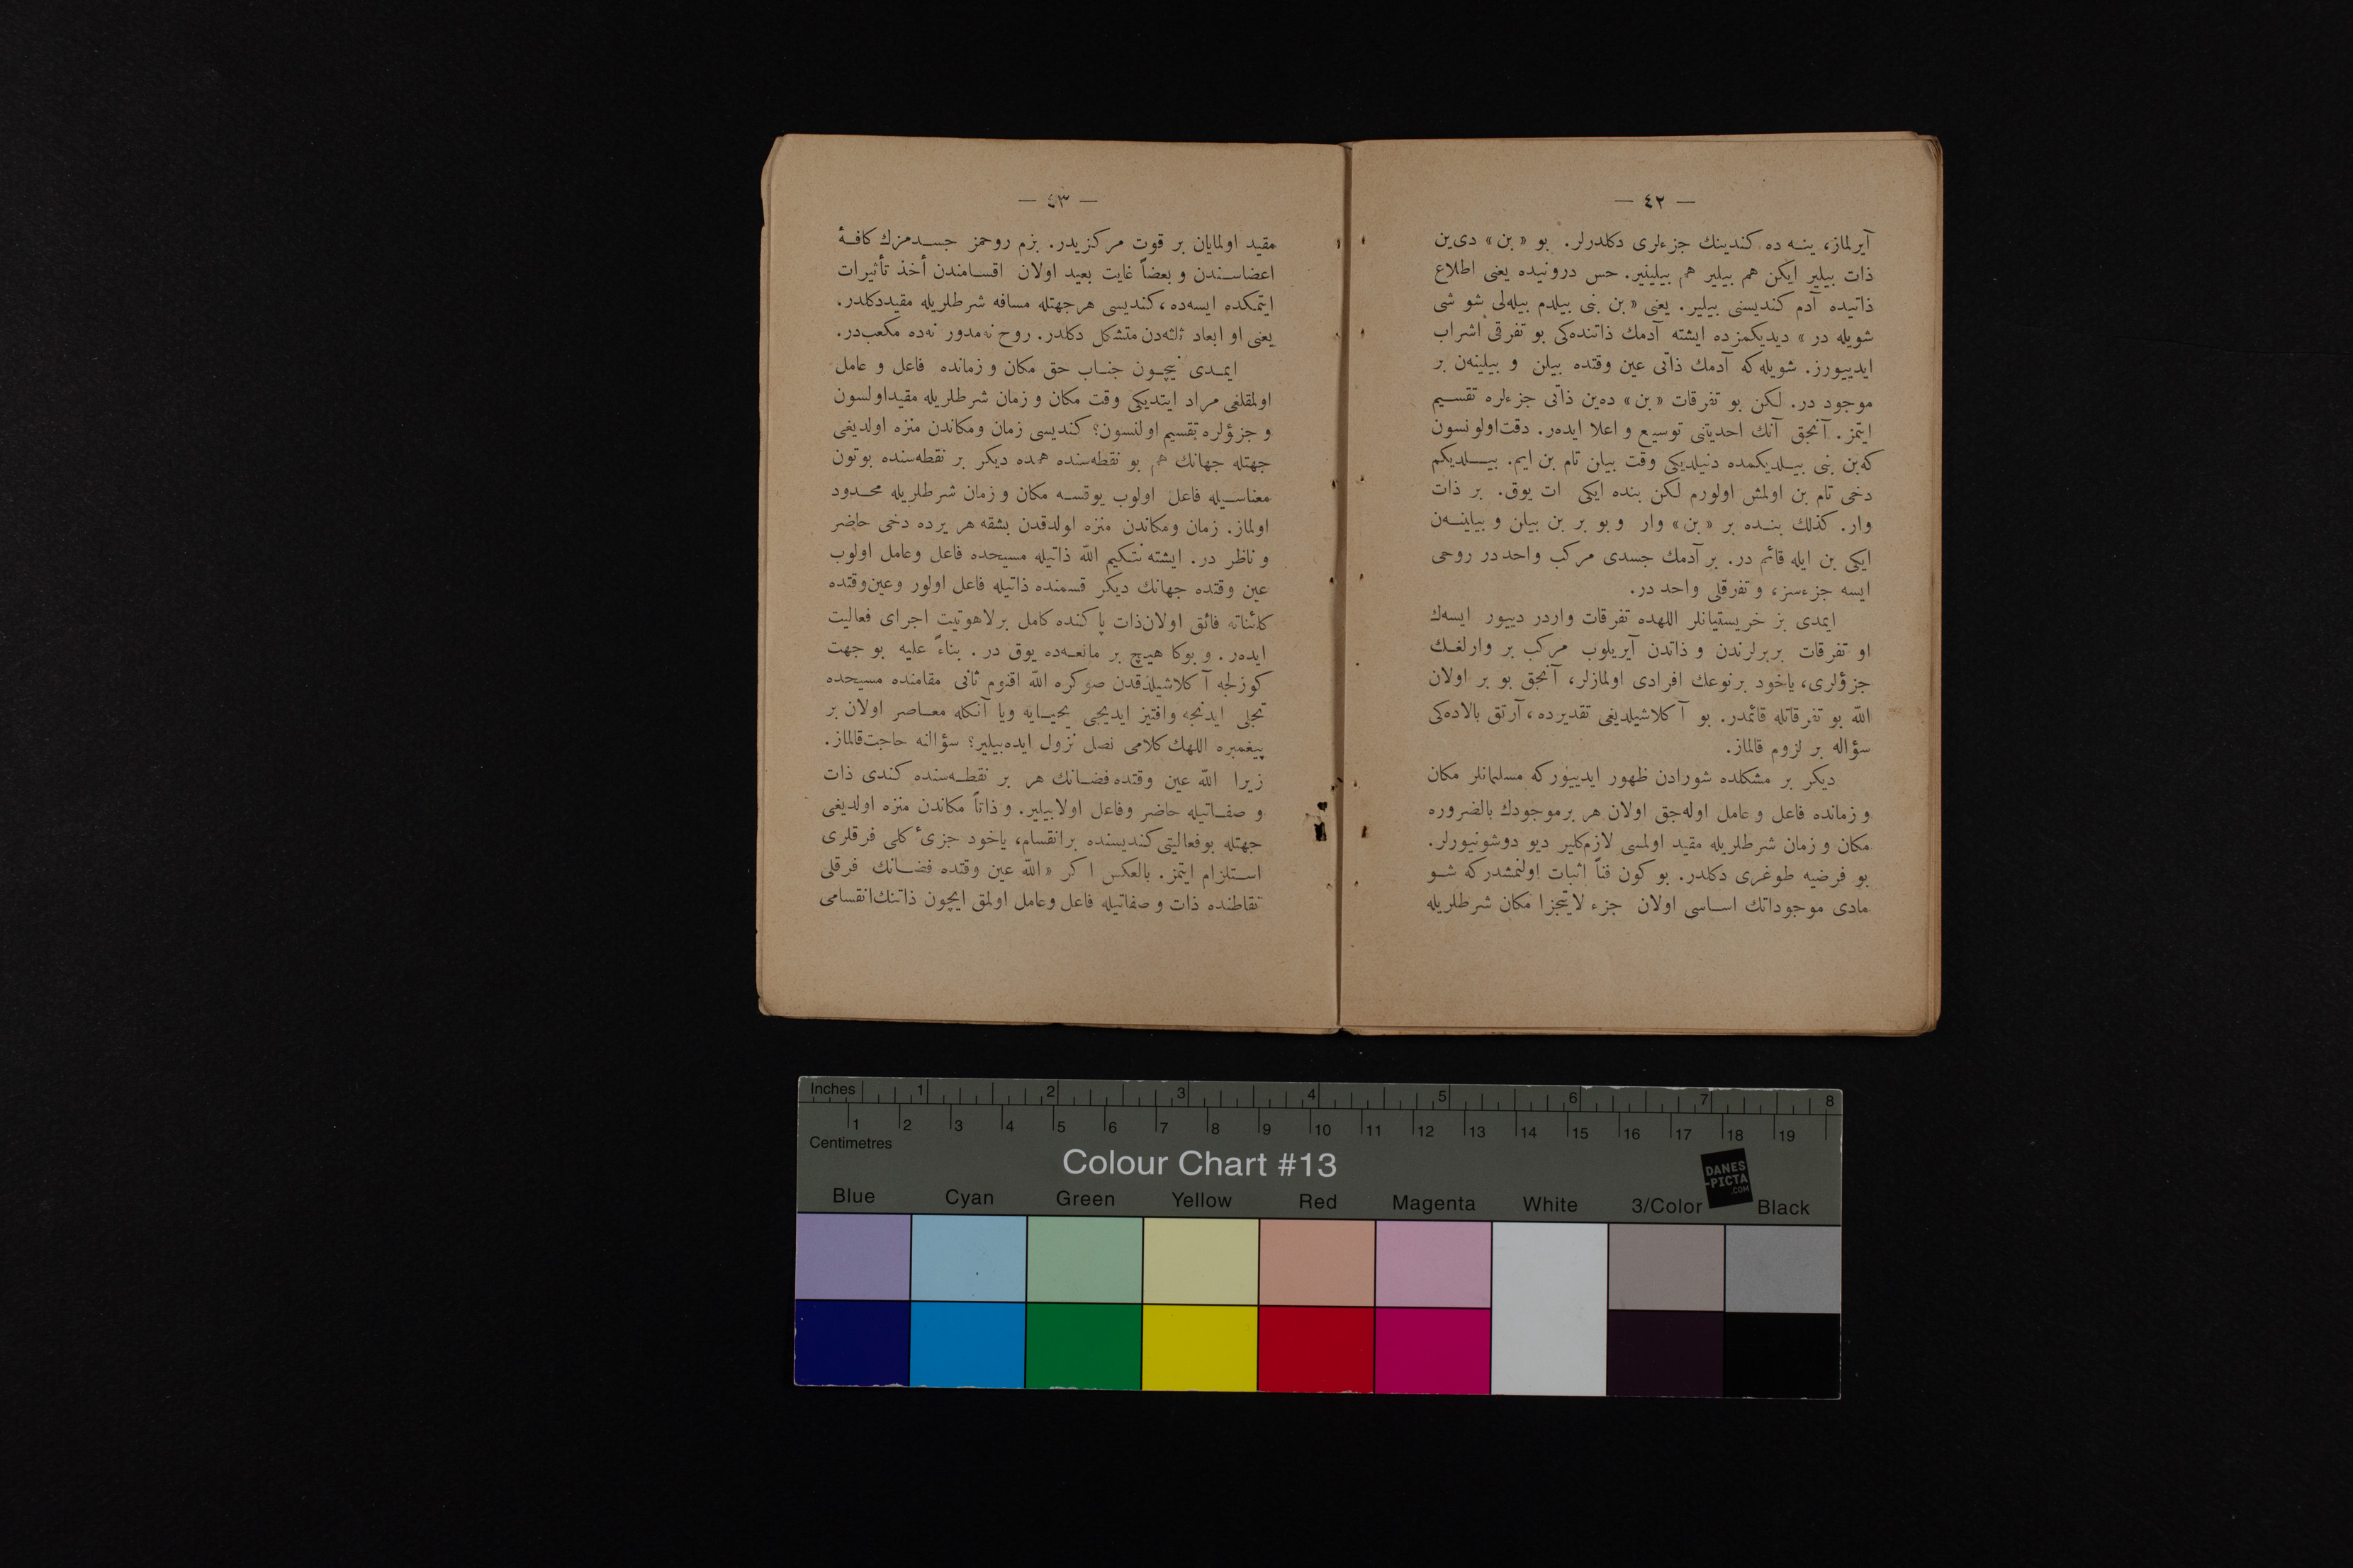 — ٤٢ —
آیرلماز، ینه ده کندینك جزءلری دکلدرلر. بو «بن» دی‌ین
ذات بیلیر ایکن هم بیلیر هم بیلینیر. حس درونیده یعنی اطلاع
ذاتیده آدم کندیسنی بیلیر. یعنی «بن بنی بیلدم بیله‌لی شو شی
شویله در» دیدیکمزده ایشته آدمك ذاتنده‌کی بو تفرقی اشراب
ایدییورز. شویله‌که آدمك ذاتی عین وقتده بیلن و بیلینه‌ن بر
موجود در. لکن بو تفرقات «بن» ده‌ین ذاتی جزءلره تقسیم
ایتمز. آنجق آنك احدیتنی توسیع و اعلا ایده‌ر. دقت اولونسون
که‌بن بنی بیلدیکمده دنیلدیکی وقت بیلن تام بن ایم. بیلدیکم
دخی تام بن اولمش اولورم لکن بنده ایکی ات یوق. بر ذات
وار. کذلك بنده بر «بن» وار و بو بر بن بیلن و بیلینه‌ن
ایکی بن ایله قائم در. بر آدمك جسدی مرکب واحد در روحی
ایسه جزءسز، و تفرقلی واحد در.
ایمدی بز خریستیانلر اللهده تفرقات واردر دییور ایسه‌ك
او تفرقات بربرلرندن و ذاتدن آیریلوب مرکب بر وارلغك
جزؤلری، یاخود برنوعك افرادی اولمازلر، آنجق بو بر اولان
الله بو تفرقاتله قائمدر. بو آکلاشیلدیغی تقدیرده، آرتق بالاده‌کی
سؤاله بر لزوم قالماز.
دیکر بر مشکلده شورادن ظهور ایدییورکه مسلمانلر مکان
و زمانده فاعل و عامل اوله‌جق اولان هر برموجودك بالضروره
مکان و زمان شرطلریله مقید اولمسی لازم‌کلیر دیو دوشونیورلر.
بو فرضیه طوغری دکلدر. بو کون فناً اثبات اولنمشدرکه شو
مادی موجوداتك اساسی اولان جزء لایتجزا مکان شرطلریله
— ٤٣ —
مقید اولمایان بر قوت مرکزیدر. بزم روحمز جسدمزك کافهٔ
اعضاسندن و بعضاً غایت بعید اولان اقسامندن أخذ تأثیرات
ایتمکده ایسه‌ده، کندیسی هرجهتله مسافه شرطلریله مقیددکلدر.
یعنی او ابعاد ثلثه‌دن متشکل دکلدر. روح نه‌مدور نه‌ده مکعب‌در.
ایمدی نیچون جناب حق مکان و زمانده فاعل و عامل
اولمقلغی مراد ایتدیکی وقت مکان و زمان شرطلریله مقیداولسون
و جزؤلره تقسیم اولنسون؟ کندیسی زمان ومکاندن منزه اولدیغی
جهتله جهانك هم بو نقطه‌سنده همده دیکر بر نقطه‌سنده بوتون
معناسیله فاعل اولوب یوقسه مکان و زمان شرطلریله محدود
اولماز. زمان ومکاندن منزه اولدقدن بشقه هر یرده دخی حاضر
و ناظر در. ایشته نتکیم الله ذاتیله مسیحده فاعل وعامل اولوب
عین وقتده جهانك دیکر قسمنده ذاتیله فاعل اولور وعین‌وقتده
کائناته فائق اولان‌ذات پاکنده کامل برلاهوتیت اجرای فعالیت
ایده‌ر. و بوکا هیچ بر مانعه‌ده یوق در. بناءً علیه بو جهت
کوزلجه آکلاشیلدقدن صوکره الله اقنوم ثانی مقامنده مسیحده
تجلی ایدنجه وافتیز ایدیجی یحیایه ویا آنکله معاصر اولان بر
پیغمبره اللهك کلامی نصل نزول ایده‌بیلیر؟ سؤالنه حاجت‌قالماز.
زیرا الله عین وقتده فضانك هر بر نقطه‌سنده کندی ذات
و صفاتیله حاضر وفاعل اولابیلیر. و ذاتاً مکاندن منزه اولدیغی
جهتله بوفعالیتی کندیسنده برانقسام، یاخود جزئ کلی فرقلری
استلزام ایتمز. بالعکس اکر «الله عین وقتده فضانك فرقلی
نقاطنده ذات و صفاتیله فاعل وعامل اولمق ایچون ذاتنك‌انقسامی
Inches 1 2 3 4 5 6 7 8
1 2 3 4 5 6 7 8 9 10 11 12 13 14 15 16 17 18 19
Centimetres
Colour Chart #13
DANES
-PICTA
.COM
Blue Cyan Green Yellow Red Magenta White 3/Color Black